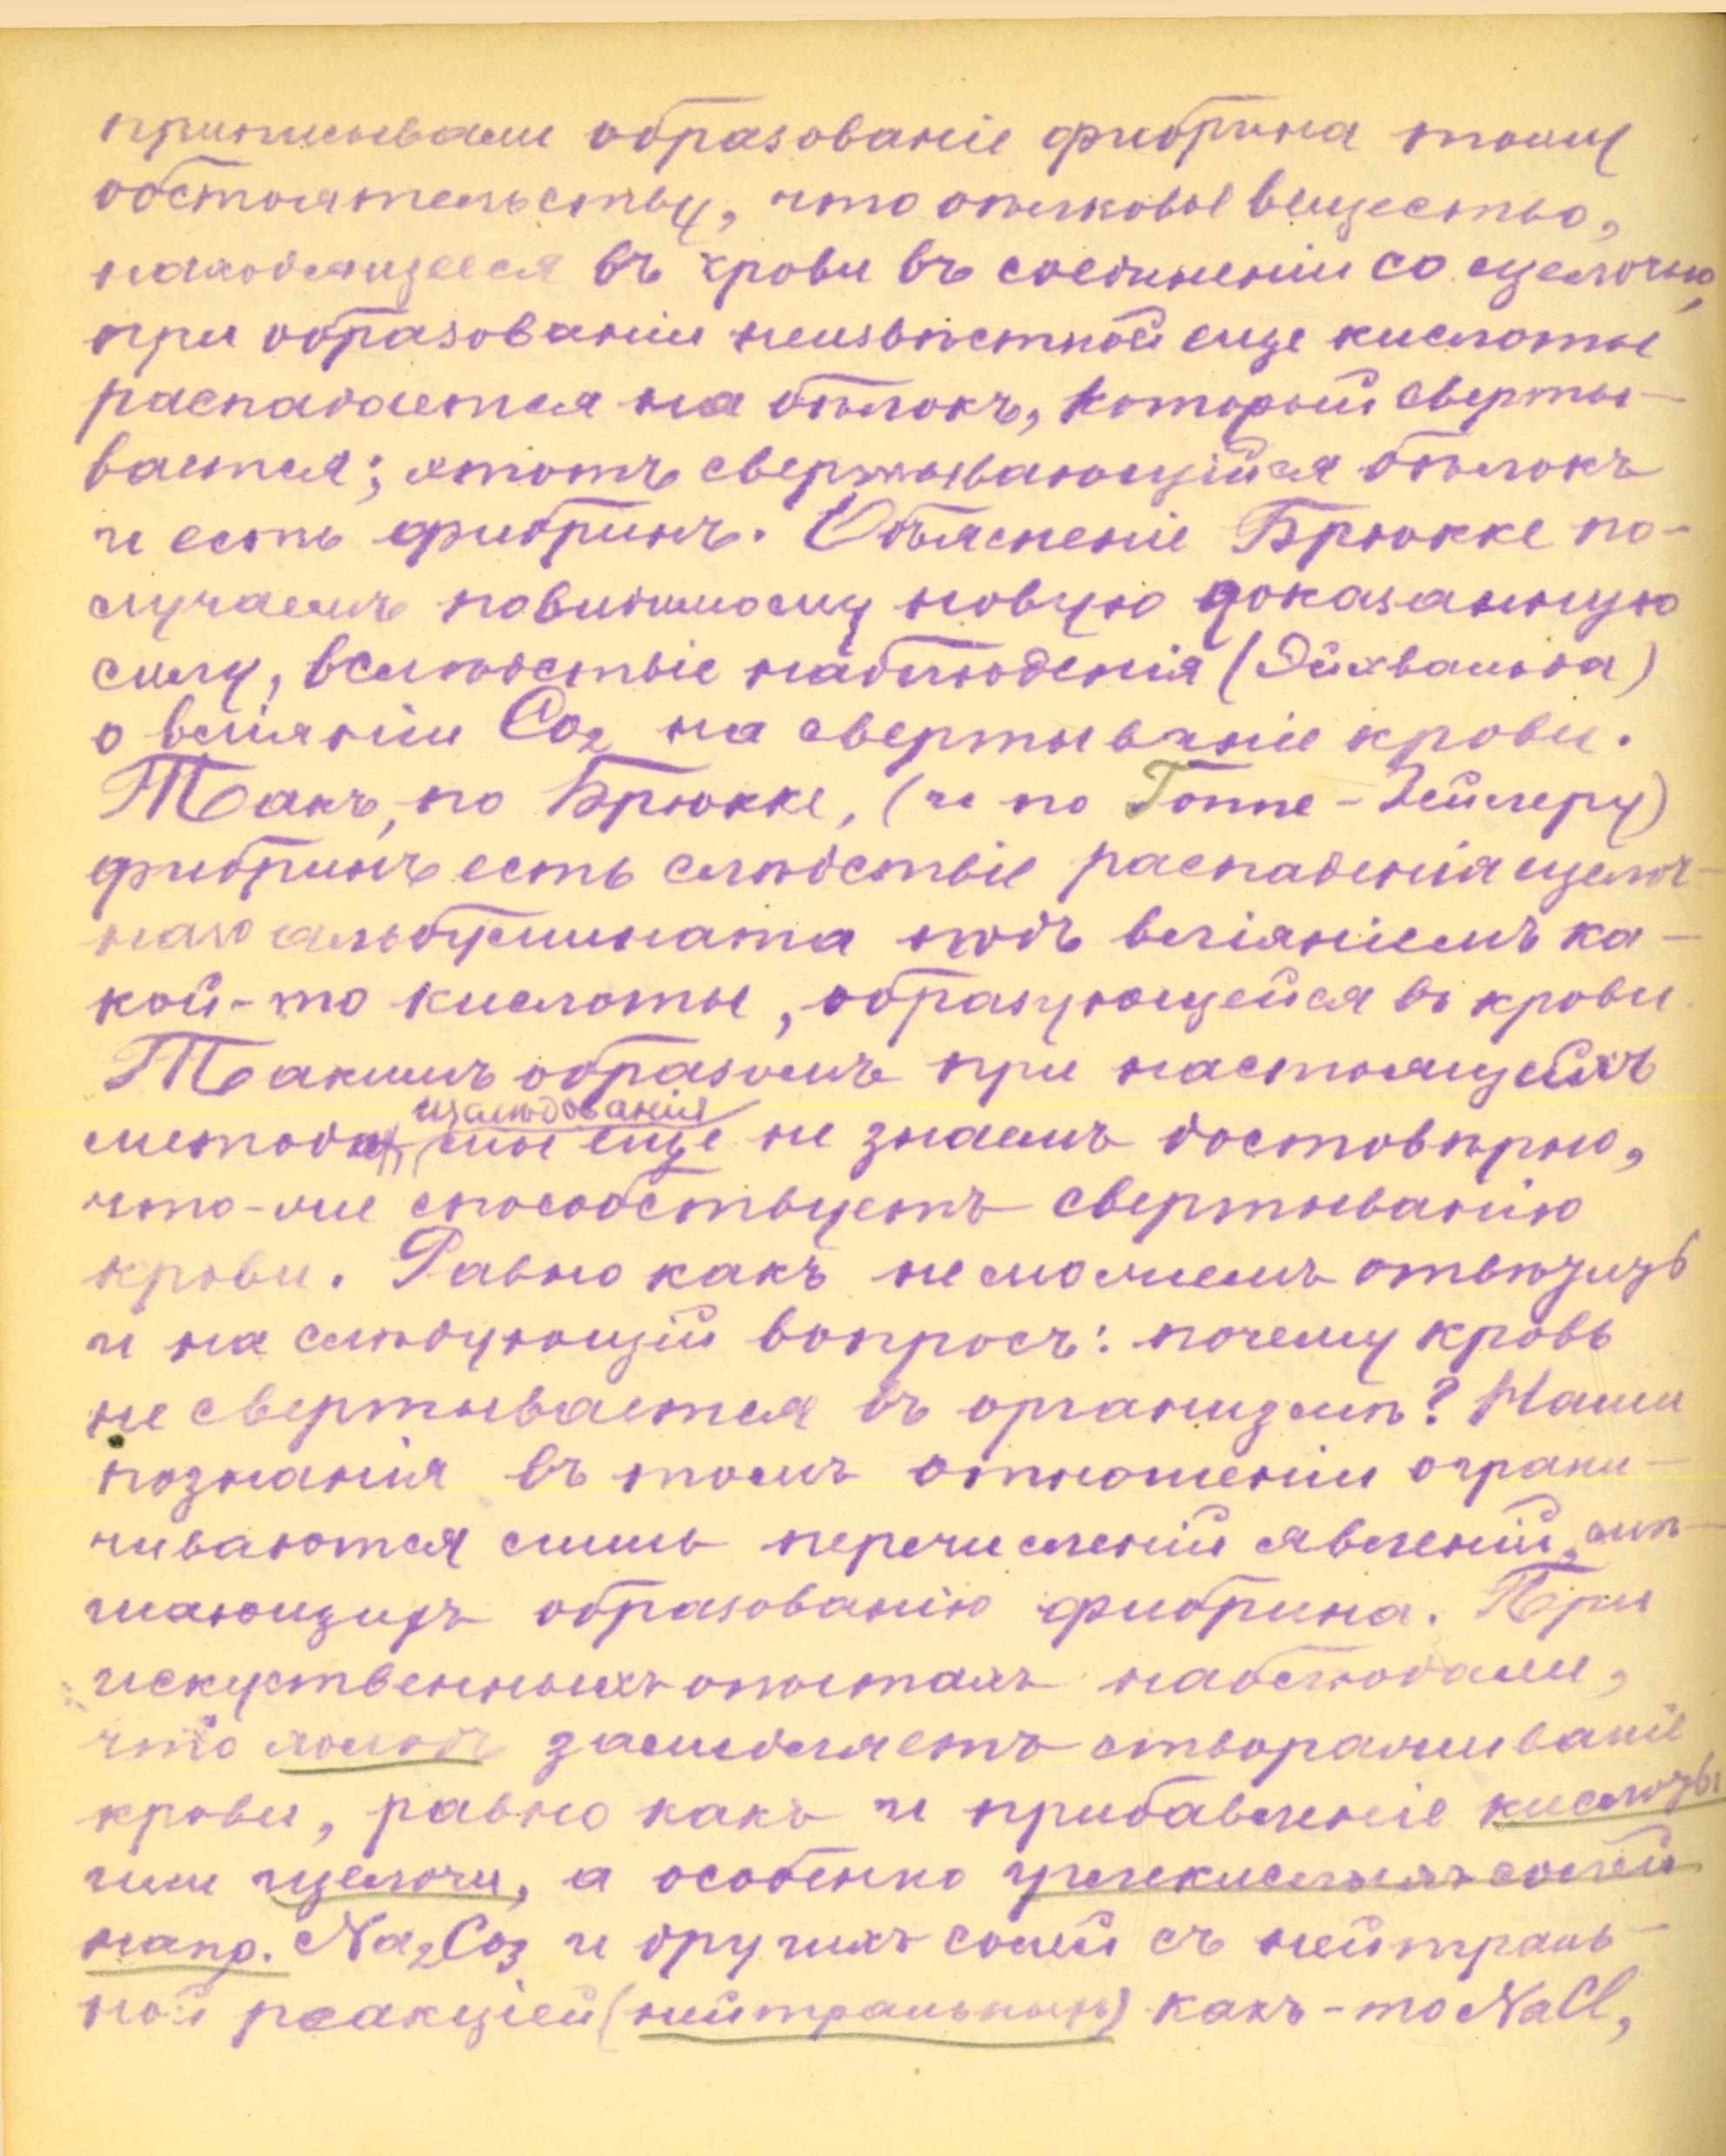 приписывали образованіе фибрина тому
обстоятельству, что бѣлковое вещество,
находящееся въ крови въ соединеніи со щелочью,
при образованіи неизвѣстной еще кислоты
распадается на бѣлокъ, который сверты-
вается; этотъ свертывающійся бѣлокъ
и есть фибринъ. Объясненіе Брюкке по-
лучаетъ повидимому новую доказанную
силу, вслѣдствіе наблюденія (Эйхвальда)
о вліяніи CO2 на свертываніе крови.
Такъ, по Брюкке, (и по Гоппе-Зейлеру)
фибринъ есть слѣдствіе распаденія щелоч-
наго альбумината подъ вліяніемъ ка-
кой-то кислоты, образующейся въ крови
Такимъ образомъ при настоящихъ
изслѣдованія
методахъ мы еще не знаемъ достовѣрно,
что-же способствуетъ свертыванію
крови. Равно какъ не можемъ отвѣтить
и на слѣдующій вопросъ: почему кровь
не свертывается въ организмѣ? Наши
познанія въ томъ отношеніи ограни-
чиваются лишь перечисленій явленій,
образованію фибрина. При
искуственныхъ опытахъ наблюдали,
что холодъ замедляетъ створаживаніе
крови, равно какъ и прибавленіе кислоты
или щелочи, а особенно углекислыхъ солей
напр. Na2Co3 и другихъ солей съ нейтраль-
ной реакціей (нейтральныхъ) какъ-то NaCl,